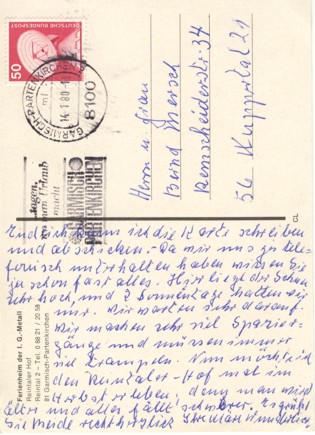 DEUTSCHE BUNDESPOST
50
GARMISCH-PARTENKIRCHEN
14.1.80
8100
GARMISCH
PARTENKIRCHEN
macht
Herrn u. Frau
Bernd Mersch
Remscheiderstr. 34
56 Wuppertal 21
CL
Endlich kann ich die Karte schreiben
und abschicken. - Da wir uns ja tele-
fonisch unterhalten haben wissen Sie
ja schon fast alles. Hier liegt der Schnee
sehr hoch, und 2 Sonnentage hatten wir
nur. Wir warten sehr darauf.
Wir machen sehr viel Spazier-
gänge und müssen immer
viel trampeln. Nun möchte ich
den Reintaler-Hof mal im
Herbst erleben, denn man wird
älter und alles fällt schwerer. Es grüßt
Sie beide recht herzlich
Ferienheim der I. G. Metall
Reintaler Hof
Reintal 2 - Tel. 0 88 21 / 20 58
81 Garmisch-Partenkirchen